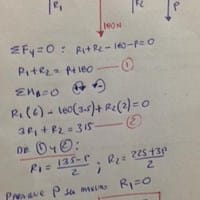 R₁ R₂ P
180N
ΣFy=0 : R₁+R₂-180-P=0
R₁+R₂ = P+180 ①
ΣMB=0
R₁(6)-180(3.5)+R₂(2)=0
3R₁+R₂=315 ②
DE ① y ②:
R₁ = 135-P/2 ; R₂ = 225+3P/2
P R₁=0